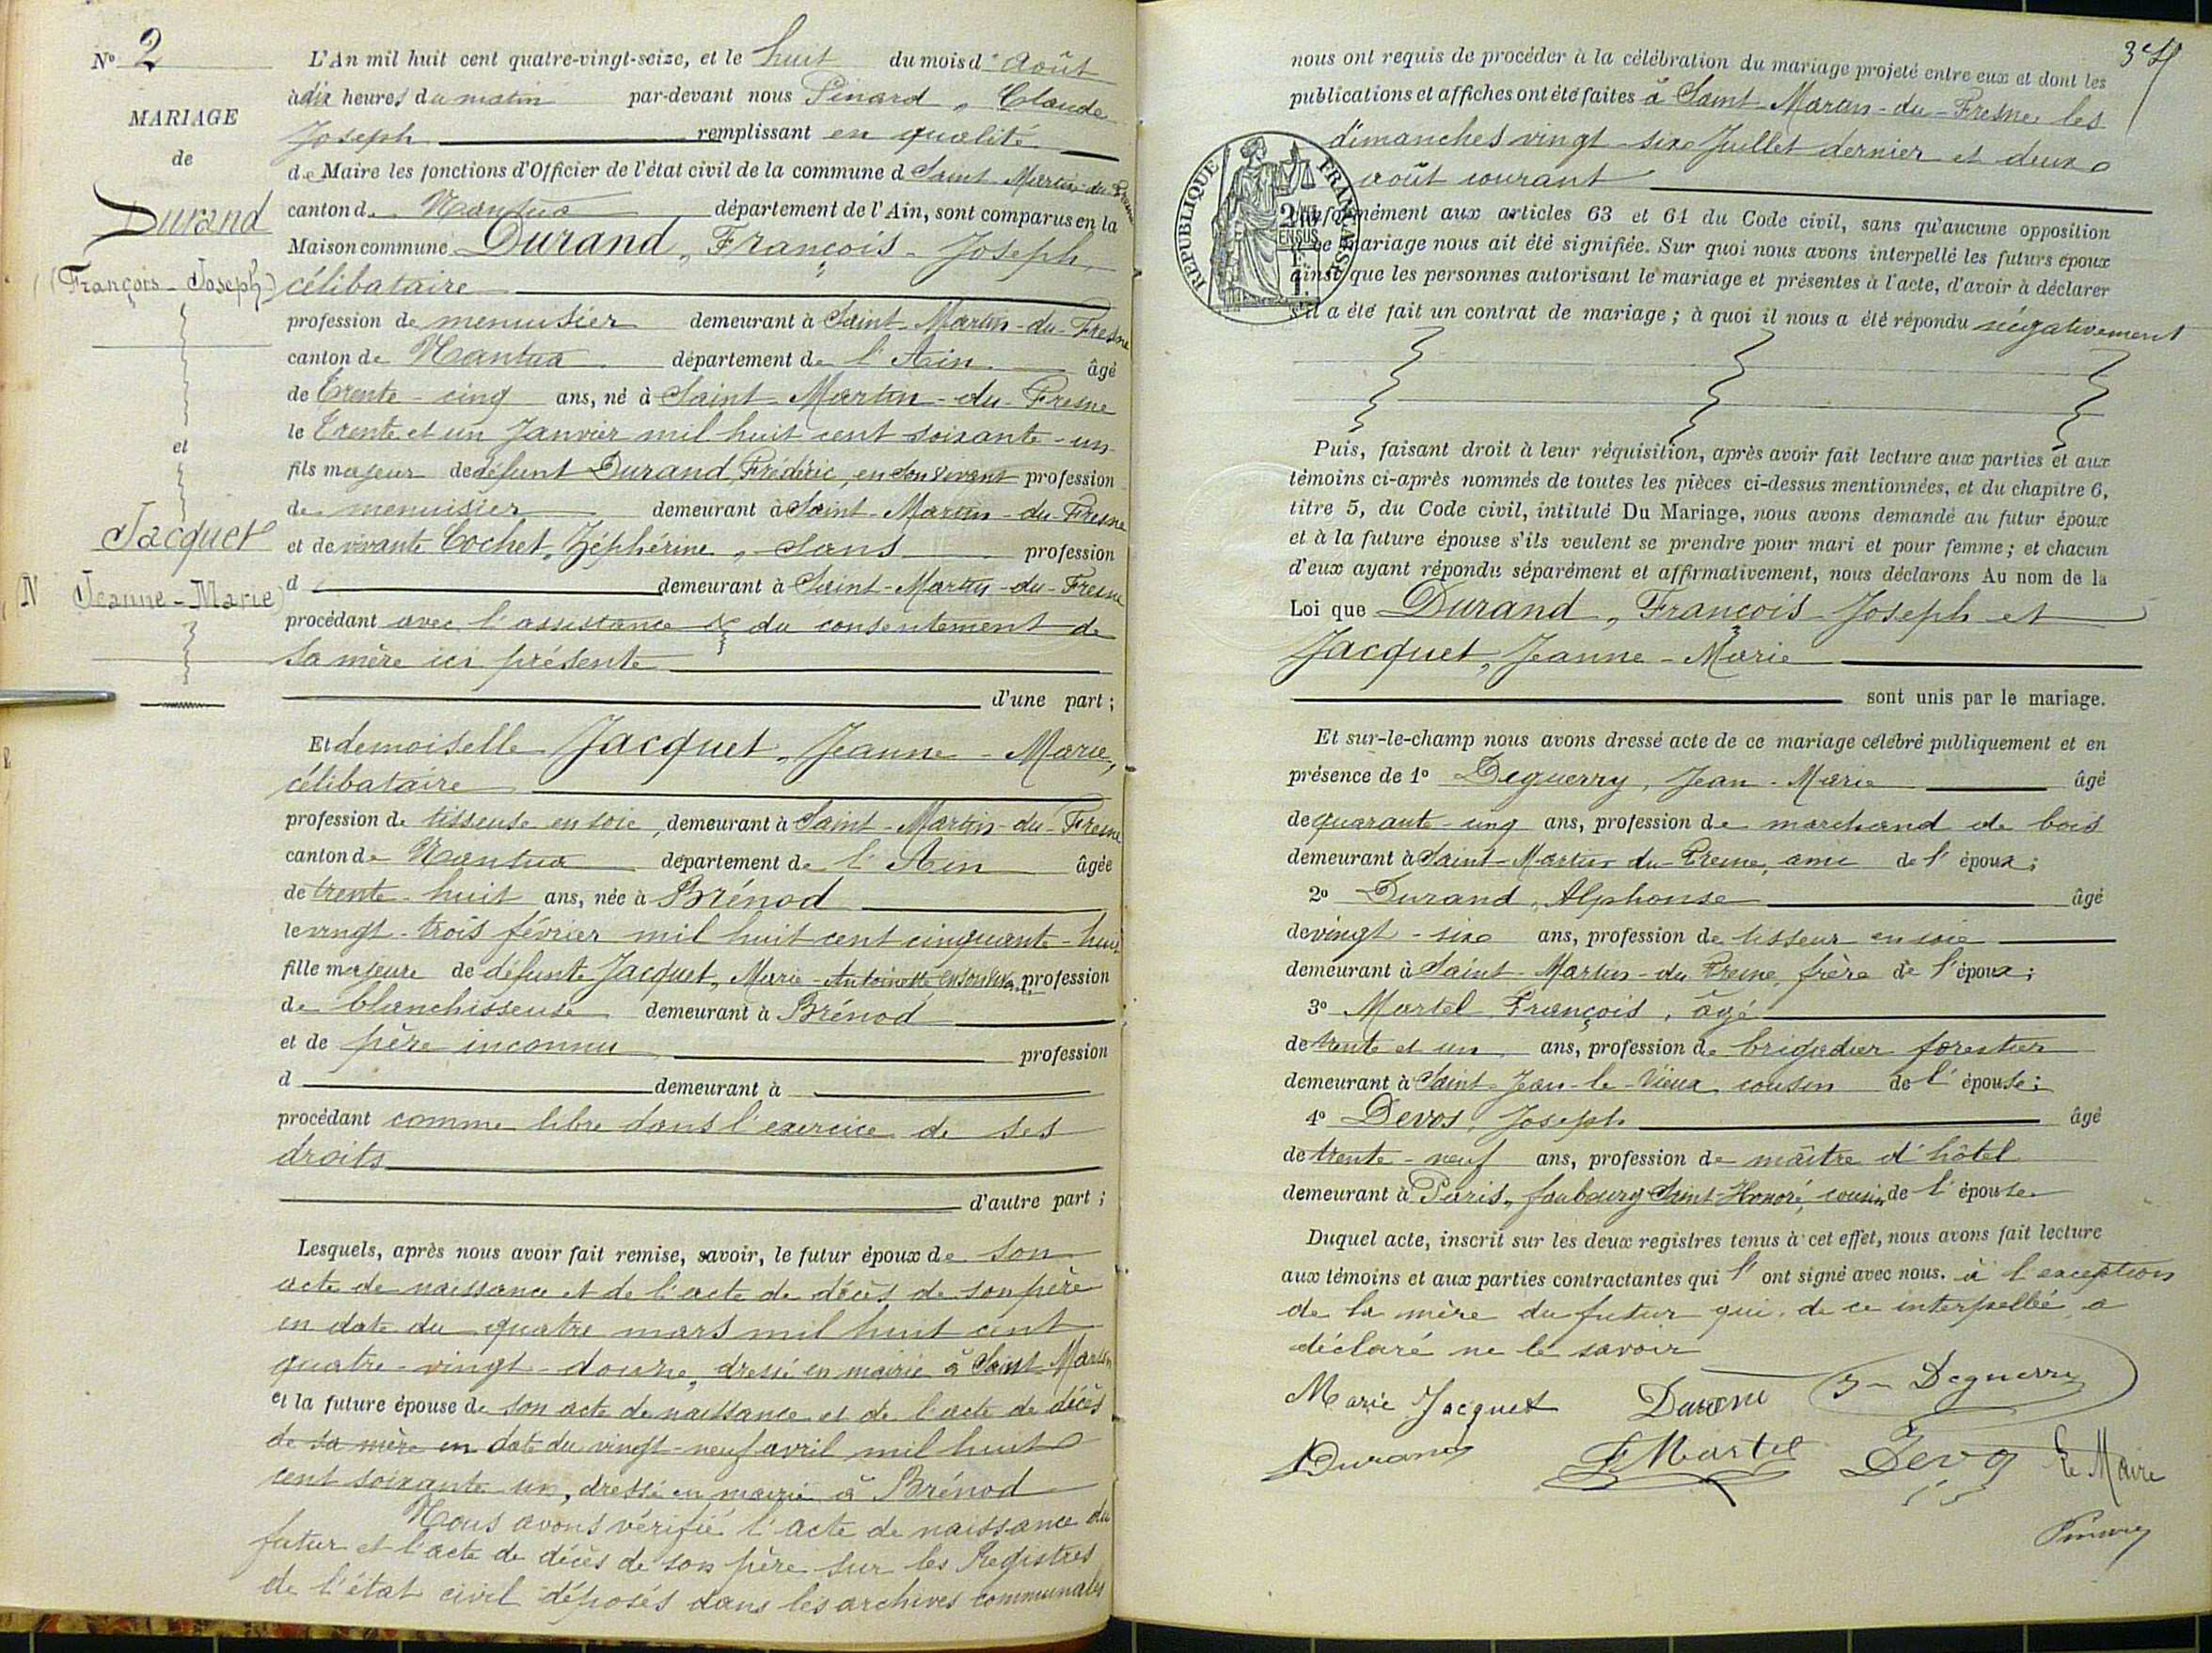 Nº 2
MARIAGE
de
Durand
(François-Joseph)
et
Jacquet
N Jeanne-Marie)
L'An mil huit cent quatre-vingt-seize, et le huit du mois d'Août
à dix heures du matin par-devant nous Pinard, Claude
Joseph remplissant en qualité
de Maire les fonctions d'Officier de l'état civil de la commune d Saint-Martin-du-Fresne
canton de Nantua département de l'Ain, sont comparus en la
Maison commune Durand, François-Joseph,
célibataire
profession de menuisier demeurant à Saint-Martin-du-Fresne
canton de Nantua département de l'Ain âgé
de trente-cinq ans, né à Saint-Martin-du-Fresne
le trente et un Janvier mil huit cent soixante-un
fils majeur de défunt Durand, Frédéric, en son vivant profession
de menuisier demeurant à Saint-Martin-du-Fresne
et de vivante Cochet, Zéphérine, sans profession
d demeurant à Saint-Martin-du-Fresne
procédant avec l'assistance & du consentement de
sa mère ici présente
d'une part ;
Et demoiselle Jacquet, Jeanne-Marie,
célibataire
profession de tisseuse en soie, demeurant à Saint-Martin-du-Fresne
canton de Nantua département de l'Ain âgée
de trente-huit ans, née à Brénod
le vingt-trois février mil huit cent cinquante-huit
fille majeure de défunte Jacquet, Marie-Antoinette, en son viv. profession
de blanchisseuse demeurant à Brénod
et de père inconnu profession
d demeurant à
procédant comme libre dans l'exercice de ses
droits
d'autre part ;
Lesquels, après nous avoir fait remise, savoir, le futur époux de son
acte de naissance et de l'acte de décès de son père
en date du quatre mars mil huit cent
quatre-vingt-douze, dressé en mairie à Saint-Martin
et la future épouse de son acte de naissance et de l'acte de décès
de sa mère en date du vingt-neuf avril mil huit
cent soixante un, dressé en mairie à Brénod
Nous avons vérifié l'acte de naissance du
futur et l'acte de décès de son père sur les Registres
de l'état civil déposés dans les archives communales
nous ont requis de procéder à la célébration du mariage projeté entre eux et dont les
publications et affiches ont été faites à Saint-Martin-du-Fresne, les
dimanches vingt-six Juillet dernier et deux
août courant
RÉPUBLIQUE FRANÇAISE
conformément aux articles 63 et 64 du Code civil, sans qu'aucune opposition
mariage nous ait été signifiée. Sur quoi nous avons interpellé les futurs époux
ainsi que les personnes autorisant le mariage et présentes à l'acte, d'avoir à déclarer
s'il a été fait un contrat de mariage ; à quoi il nous a été répondu négativement
Puis, faisant droit à leur réquisition, après avoir fait lecture aux parties et aux
témoins ci-après nommés de toutes les pièces ci-dessus mentionnées, et du chapitre 6,
titre 5, du Code civil, intitulé Du Mariage, nous avons demandé au futur époux
et à la future épouse s'ils veulent se prendre pour mari et pour femme ; et chacun
d'eux ayant répondu séparément et affirmativement, nous déclarons Au nom de la
Loi que Durand, François-Joseph et
Jacquet, Jeanne-Marie
sont unis par le mariage.
Et sur-le-champ nous avons dressé acte de ce mariage célébré publiquement et en
présence de 1º Deguerry, Jean-Marie âgé
de quarante-cinq ans, profession de marchand de bois
demeurant à Saint-Martin-du-Fresne, ami de l'époux ;
2º Durand, Alphonse âgé
de vingt-six ans, profession de tisseur en soie
demeurant à Saint-Martin-du-Fresne, frère de l'époux ;
3º Martel, François, âgé
de trente et un ans, profession de brigadier forestier
demeurant à Saint-Jean-le-Vieux, cousin de l'épouse ;
4º Devos, Joseph âgé
de trente-neuf ans, profession de maître d'hôtel
demeurant à Paris, faubourg Saint-Honoré, cousin de l'épouse.
Duquel acte, inscrit sur les deux registres tenus à cet effet, nous avons fait lecture
aux témoins et aux parties contractantes qui l'ont signé avec nous. à l'exception
de la mère du futur qui, de ce interpellée, a
déclaré ne le savoir
Marie Jacquet Durand Jn Deguerry
Durand F Martel Devos Le Maire
Pinard